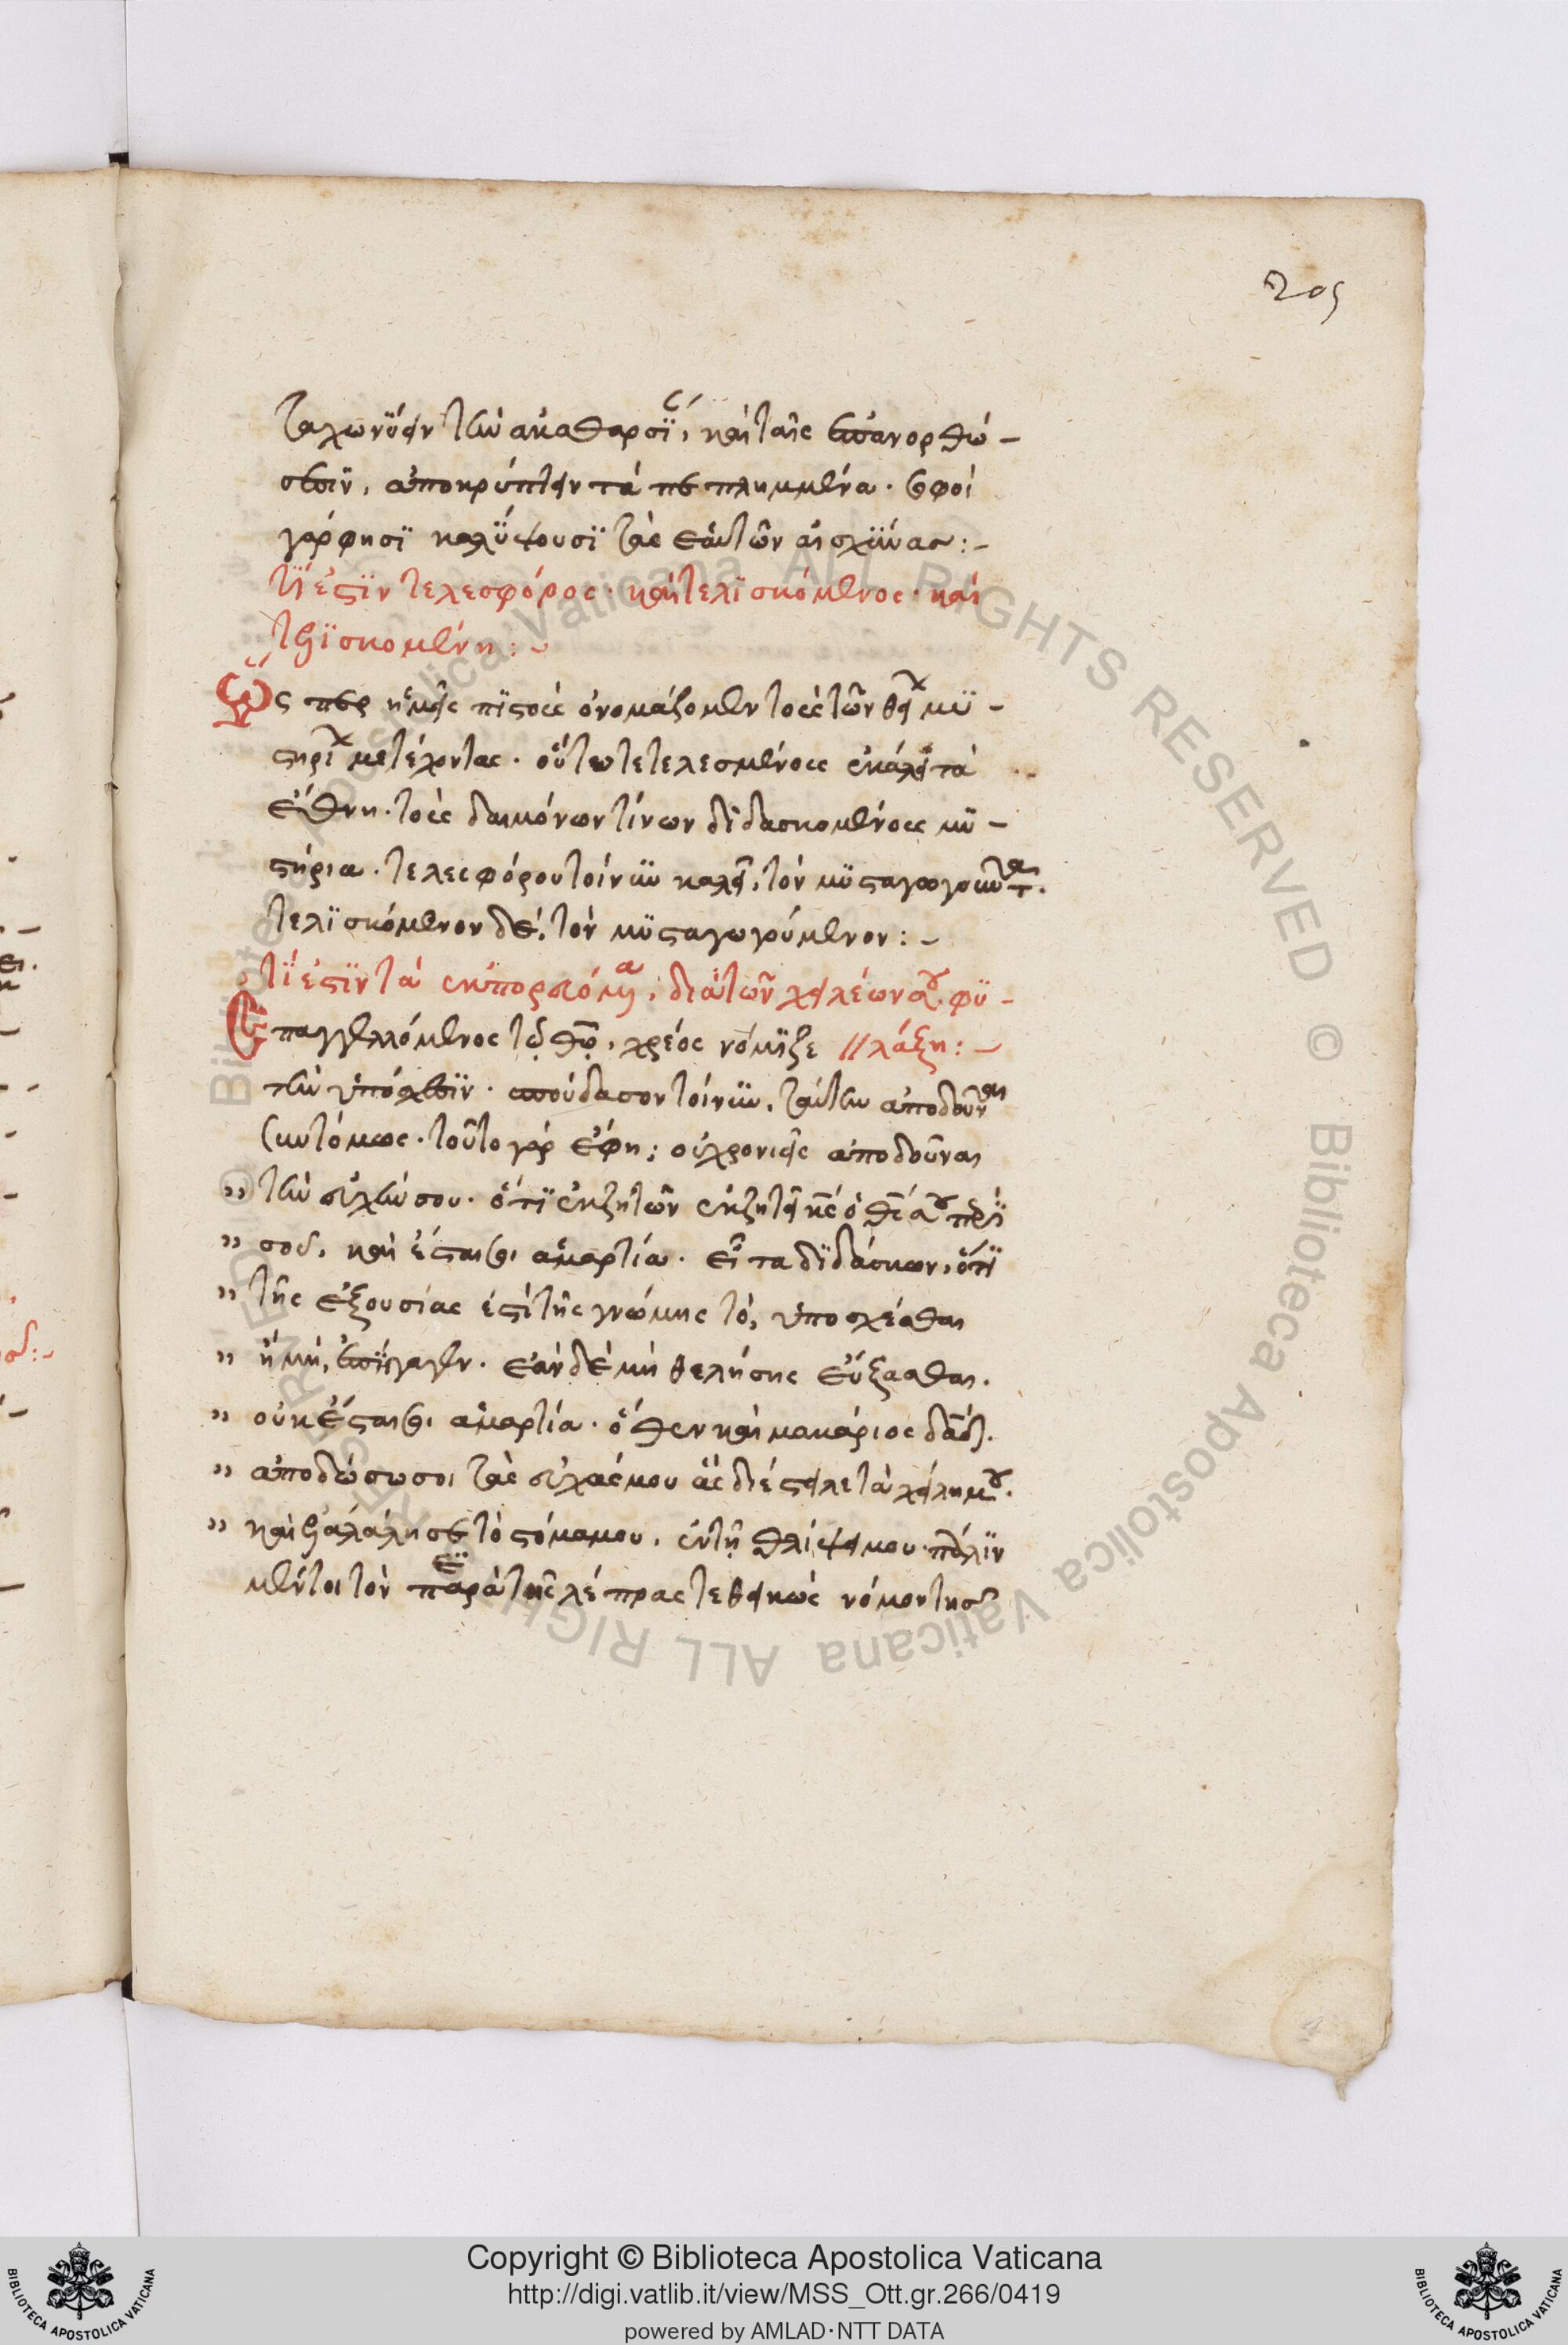 205
ζαλωνύειν τὴν ἀκαθαρσΐ, καὶ ταῖς ἐπανορθώ-
σεσιν, ἀποκρύπτειν τὰ πεπλημμένα. σοφοὶ
γάρ φησϊ καλΰψουσϊ τὰς ἑαυτῶν αἰσχΰνας:-
τΐ ἐστϊν τελεσφόρος· καὶ τελϊσκόμενος· καὶ
τελϊσκομένη:-
Ὥσπερ ἡμεῖς πϊστοὺς ὀνομάζομεν τοὺς τῶν θείων μϋ-
στηρίων μετέχοντας. οὕτω τετελεσμένους ἐκάλει τὰ
ἔθνη. τοὺς δαιμόνων τίνων διδασκομένους μϋ-
στήρια. τελεσφόρου τοίνϋν καλεῖ, τὸν μϋσταγωγοῦντα.
τελϊσκόμενον δὲ, τὸν μϋσταγωγούμενον:-
τΐ ἐστϊν τὰ ἐκπορευόμενα, διὰ τῶν χειλέων αὐτοῦ φϋ-
Ἐπαγγελλόμενος τῷ θῷ, χρέος νόμϊζε // λάξη:-
τὴν ὑπόσχεσϊν. σπούδασον τοίνϋν, ταύτην ἀποδοῦναι
συντόμως. τοῦτο γάρ ἔφη: οὐ χρονιεῖς ἀποδοῦναι
" τὴν εὐχήν σου. ὅτϊ ἐκζητῶν ἐκζητεῖ κς ὁ θς αὐτοῦ παρϊ
" σοῦ, καὶ ἔσται σοι ἁμαρτία. εἶτα δϊδάσκων, ὅτϊ
" τῆς ἐξουσίας ἐστὶ τῆς γνώμης τὸ, ὑποσχέσθαι
" ἢ μὴ, ἐπήγαγεν. ἐὰν δὲ μὴ θελήσης εὔξασθαι.
" οὐκ ἔσται σοι ἁμαρτία. ὅθεν καὶ μακάριος δαδ.
" ἀποδώσω σοι τὰς εὐχάς μου ἃς διέστειλε τὰ χείλη μου.
" καὶ ἐξαλάλησε τὸ στόμα μου, ἐν τῇ θλίψει μου. πάλϊν
μέντοι τὸν παρὰ τῆς λέπρας τεθεικὼς νόμον τησ
Copyright © Biblioteca Apostolica Vaticana
http://digi.vatlib.it/view/MSS_Ott.gr.266/0419
powered by AMLAD·NTT DATA